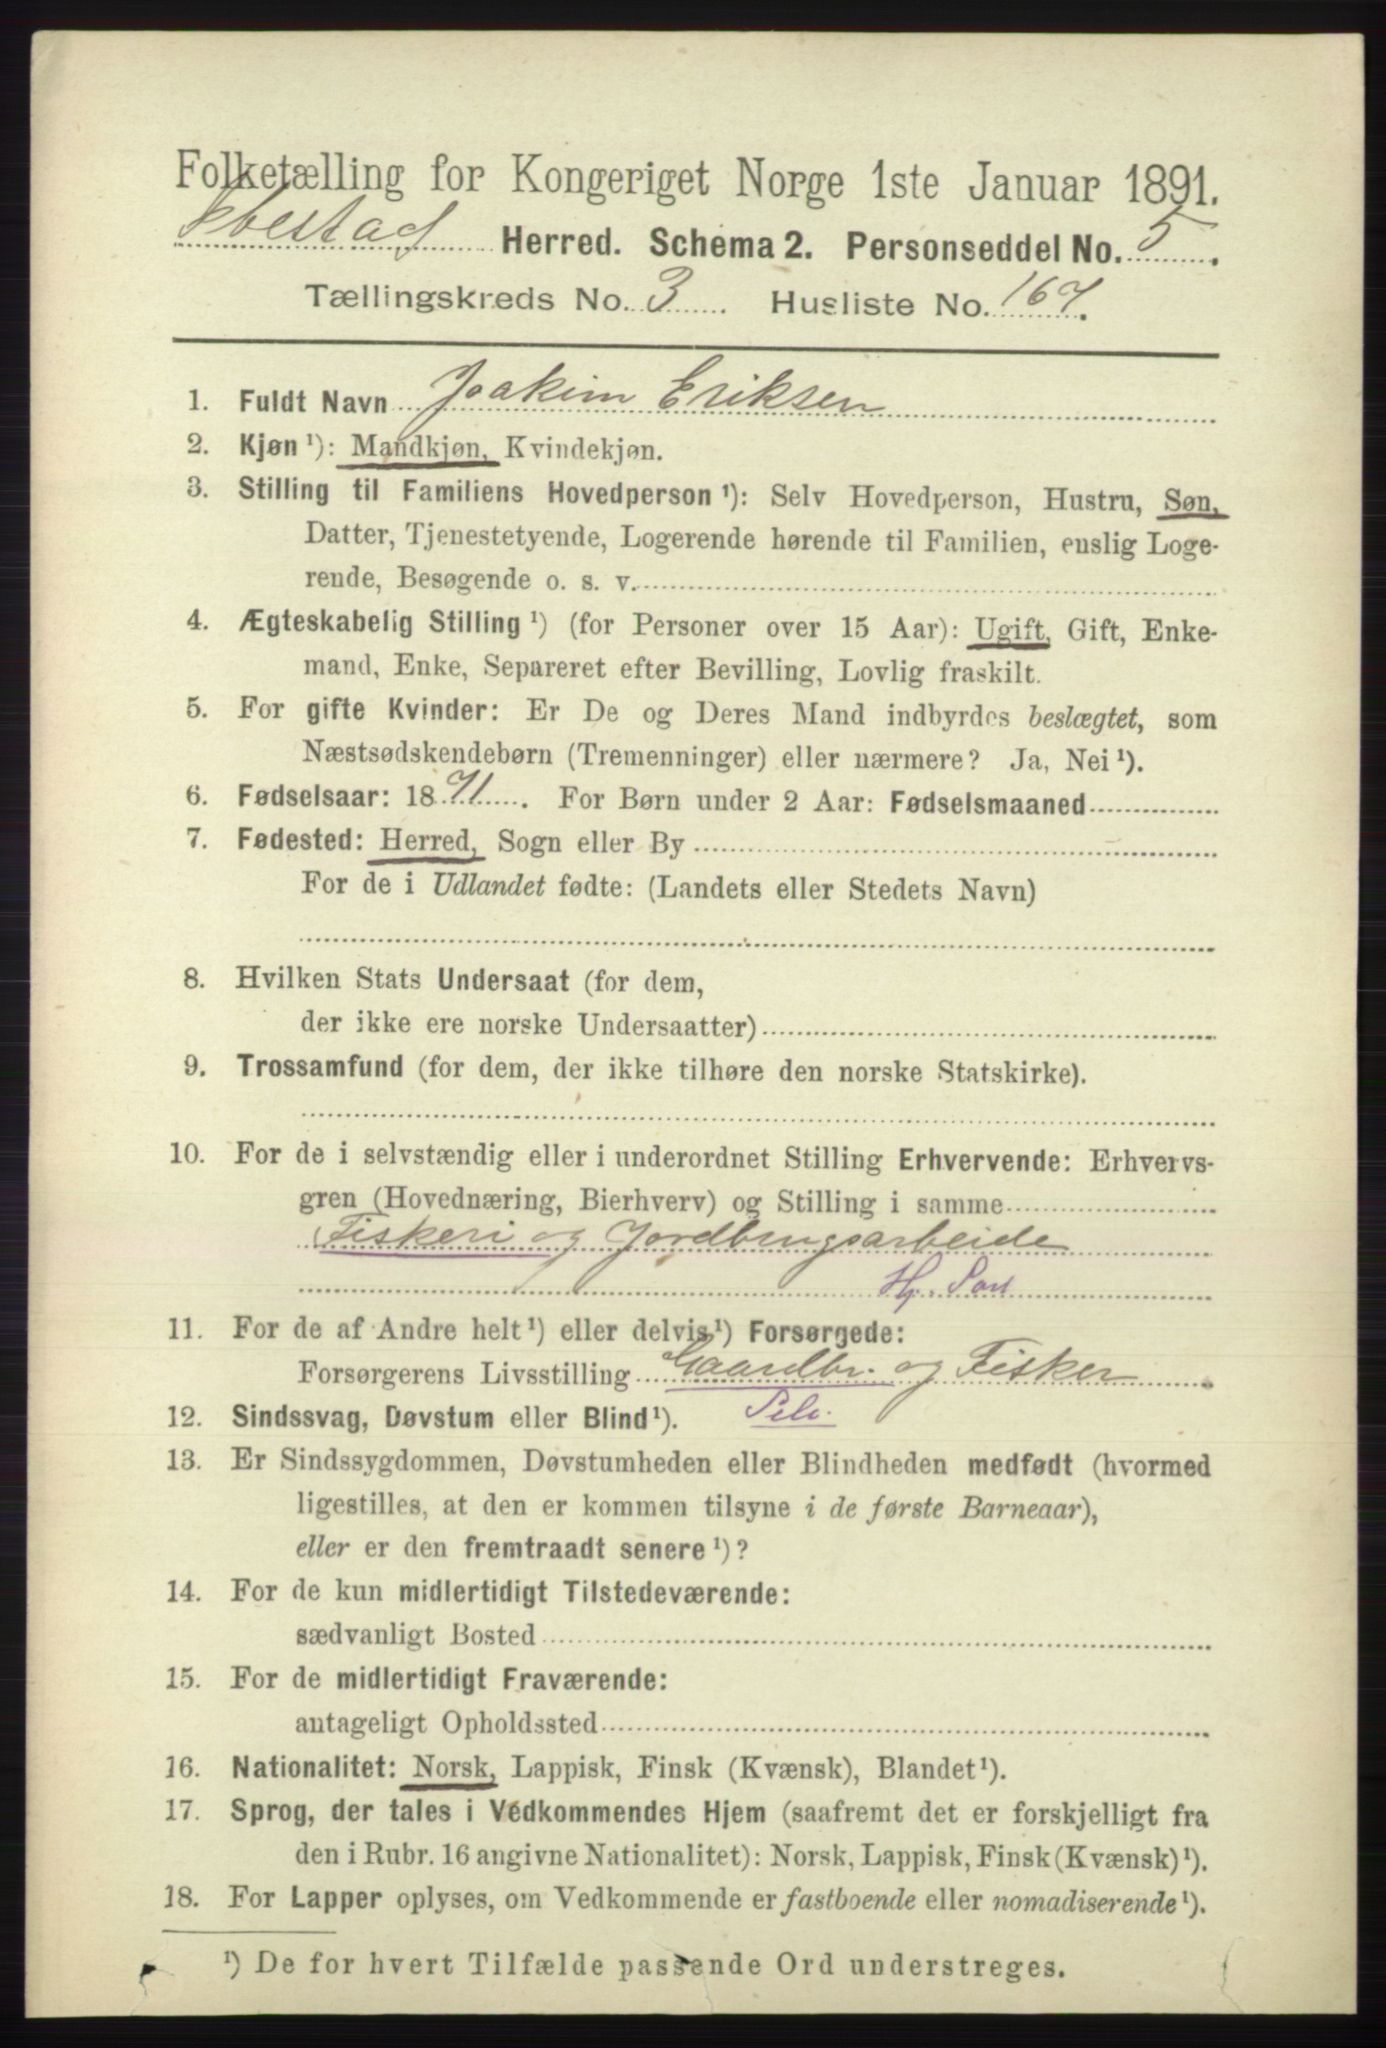 Folketælling for Kongeriget Norge 1ste Januar 1891.
Ibestad Herred. Schema 2. Personseddel No. 5.
Tællingskreds No. 3 Husliste No. 167.
1. Fuldt Navn Joakim Eriksen
2. Kjøn ¹): Mandkjøn, Kvindekjøn.
3. Stilling til Familiens Hovedperson ¹): Selv Hovedperson, Hustru, Søn,
Datter, Tjenestetyende, Logerende hørende til Familien, enslig Loge-
rende, Besøgende o. s. v.
4. Ægteskabelig Stilling ¹) (for Personer over 15 Aar): Ugift, Gift, Enke-
mand, Enke, Separeret efter Bevilling, Lovlig fraskilt.
5. For gifte Kvinder: Er De og Deres Mand indbyrdes beslægtet, som
Næstsødskendebørn (Tremenninger) eller nærmere? Ja, Nei ¹).
6. Fødselsaar: 1871. For Børn under 2 Aar: Fødselsmaaned
7. Fødested: Herred, Sogn eller By
For de i Udlandet fødte: (Landets eller Stedets Navn)
8. Hvilken Stats Undersaat (for dem,
der ikke ere norske Undersaatter)
9. Trossamfund (for dem, der ikke tilhøre den norske Statskirke).
10. For de i selvstændig eller i underordnet Stilling Erhvervende: Erhvervs-
gren (Hovednæring, Bierhverv) og Stilling i samme
Fiskeri og Jordbrugsarbeide
11. For de af Andre helt ¹) eller delvis ¹) Forsørgede:
Forsørgerens Livsstilling Gaardbr. og Fisker
12. Sindssvag, Døvstum eller Blind ¹).
13. Er Sindssygdommen, Døvstumheden eller Blindheden medfødt (hvormed
ligestilles, at den er kommen tilsyne i de første Barneaar),
eller er den fremtraadt senere ¹)?
14. For de kun midlertidigt Tilstedeværende:
sædvanligt Bosted
15. For de midlertidigt Fraværende:
antageligt Opholdssted
16. Nationalitet: Norsk, Lappisk, Finsk (Kvænsk), Blandet ¹).
17. Sprog, der tales i Vedkommendes Hjem (saafremt det er forskjelligt fra
den i Rubr. 16 angivne Nationalitet): Norsk, Lappisk, Finsk (Kvænsk) ¹).
18. For Lapper oplyses, om Vedkommende er fastboende eller nomadiserende ¹).
¹) De for hvert Tilfælde passende Ord understreges.